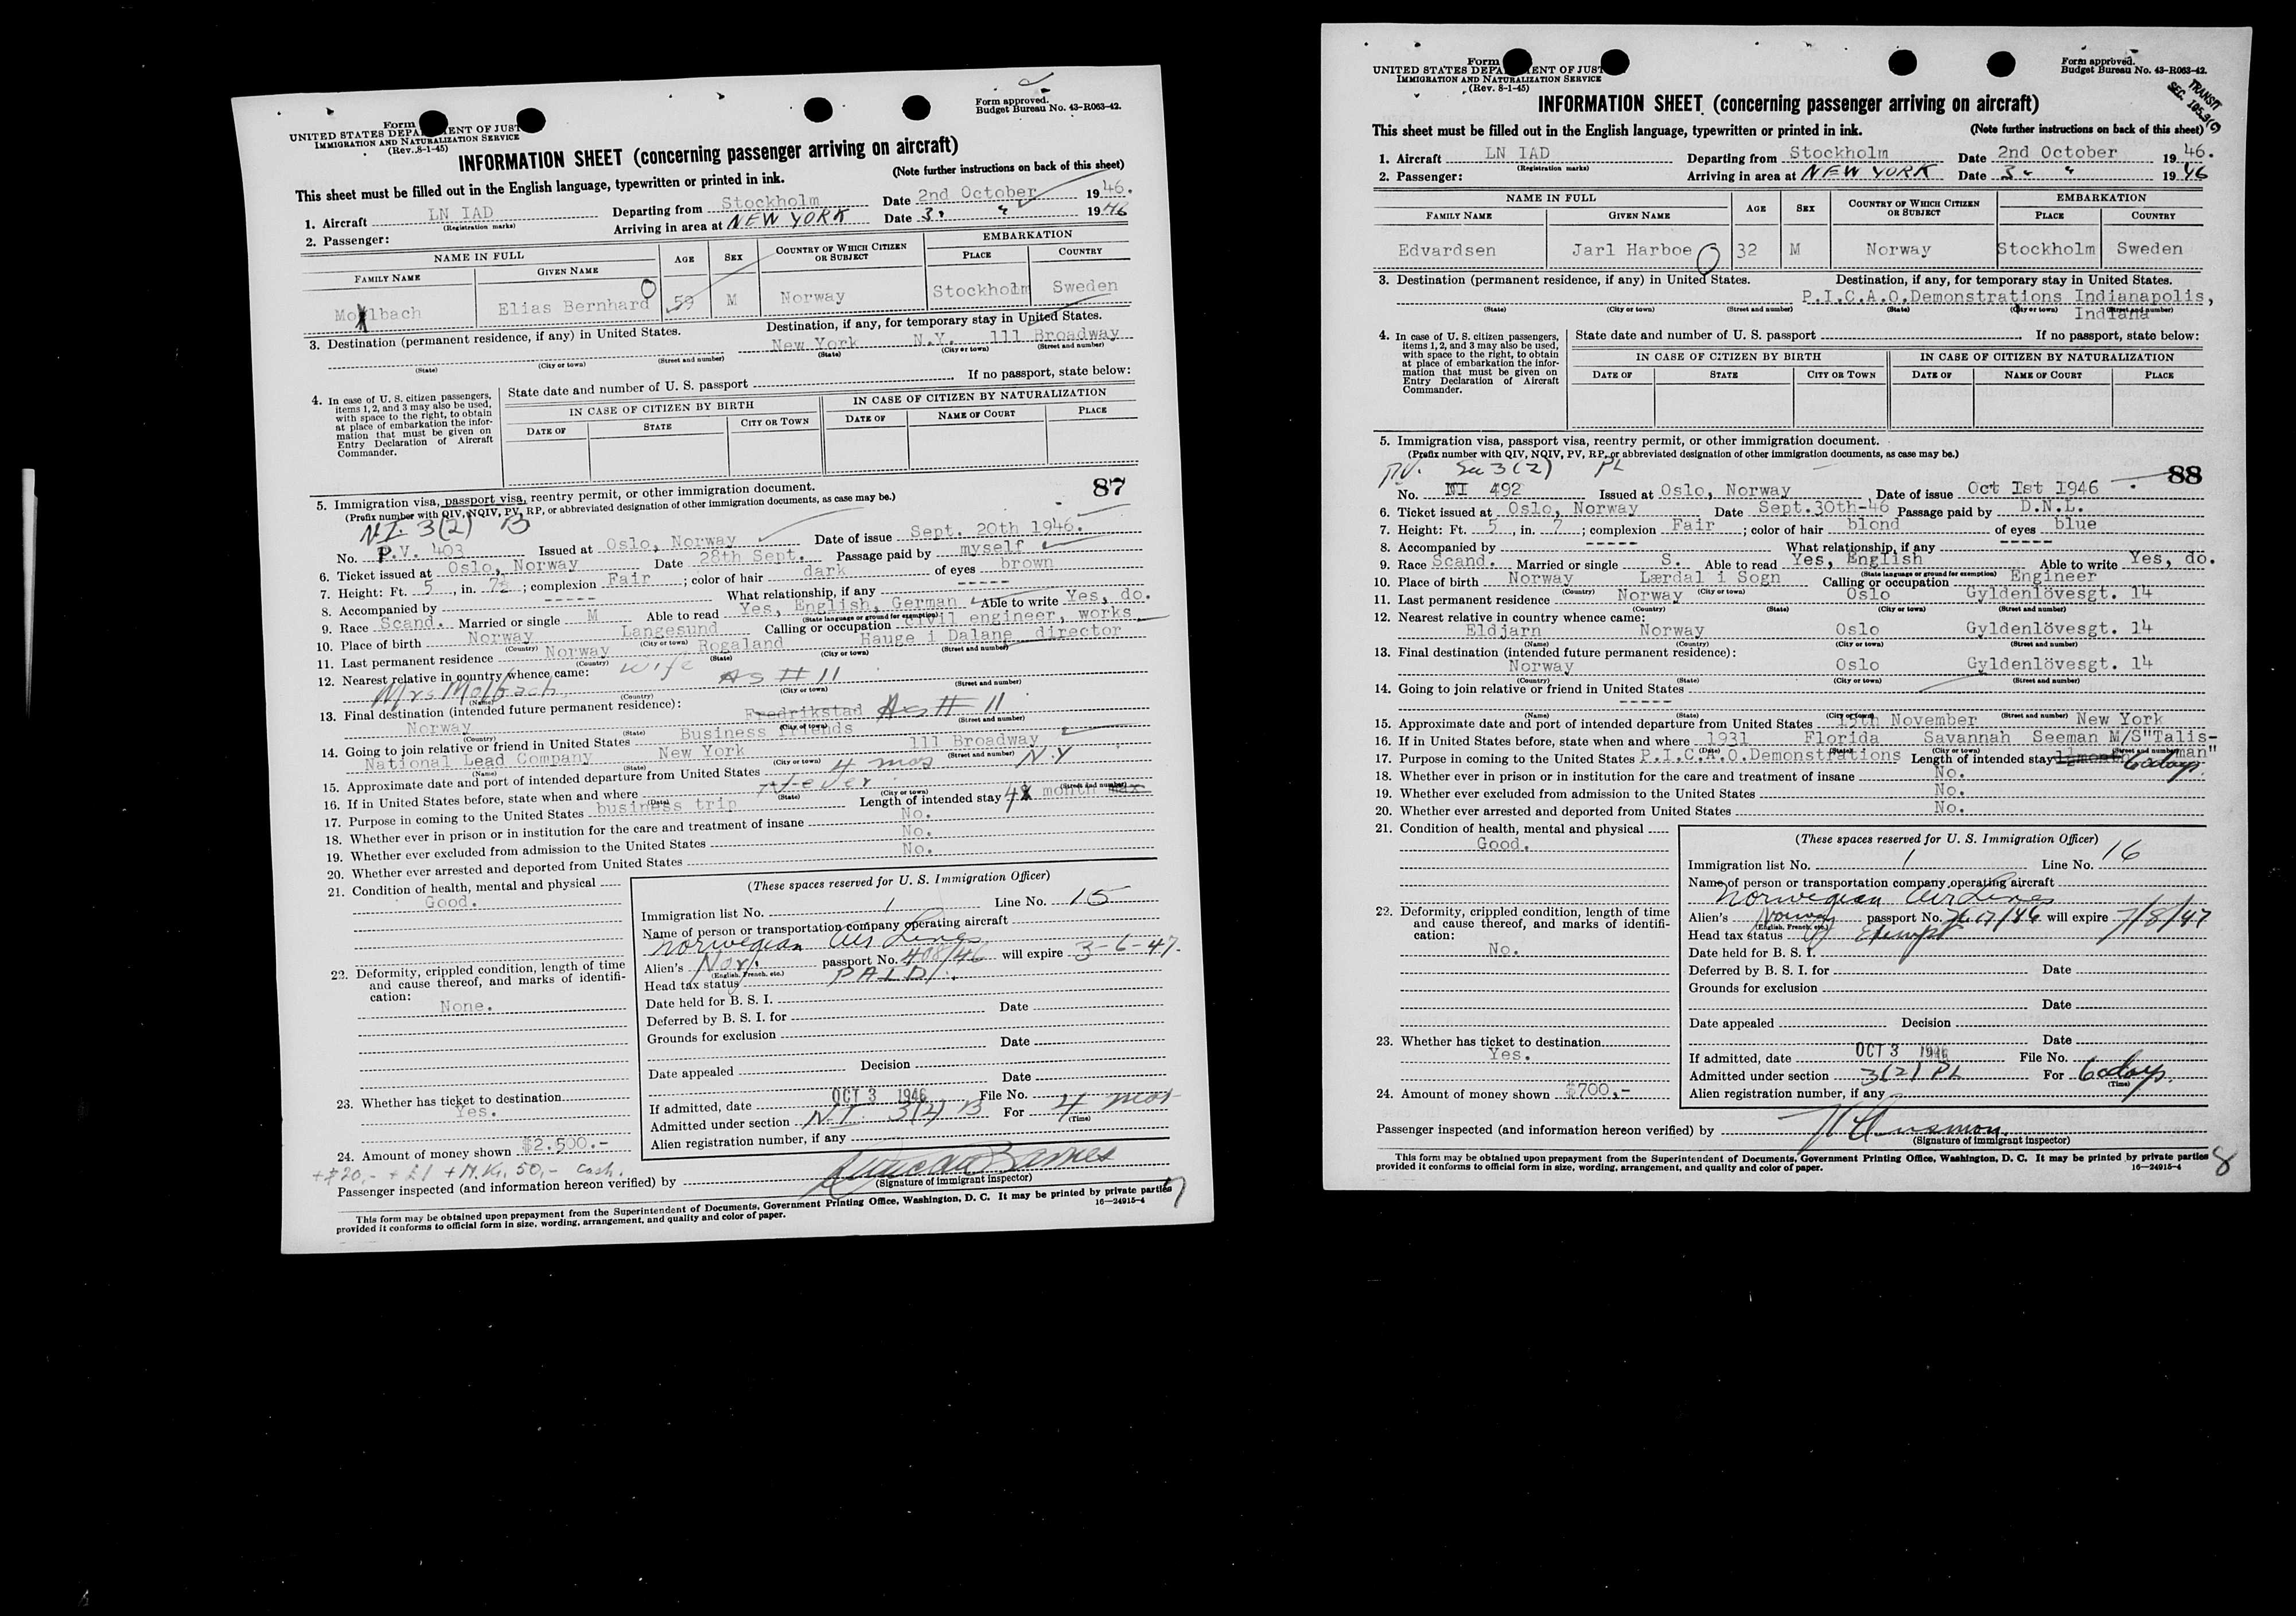 Form
UNITED STATES DEPA ENT OF JUST
IMMIGRATION AND NATURALIZATION SERVICE
(Rev. 8-1-45)
Form approved.
Budget Bureau No. 43-R063-42.
INFORMATION SHEET (concerning passenger arriving on aircraft)
This sheet must be filled out in the English language, typewritten or printed in ink.
(Note further instructions on back of this sheet)
1. Aircraft LN IAD Departing from Stockholm Date 2nd October 1946.
(Registration marks)
2. Passenger: Arriving in area at NEW YORK Date 3 " 1946
NAME IN FULL AGE SEX COUNTRY OF WHICH CITIZEN OR SUBJECT EMBARKATION
FAMILY NAME GIVEN NAME PLACE COUNTRY
Mølbach Elias Bernhard 59 M Norway Stockholm Sweden
3. Destination (permanent residence, if any) in United States. Destination, if any, for temporary stay in United States.
New York N.Y. 111 Broadway
(State) (City or town) (Street and number) (State) (City or town) (Street and number)
4. In case of U. S. citizen passengers, items 1, 2, and 3 may also be used, with space to the right, to obtain at place of embarkation the information that must be given on Entry Declaration of Aircraft Commander.
State date and number of U. S. passport If no passport, state below:
IN CASE OF CITIZEN BY BIRTH IN CASE OF CITIZEN BY NATURALIZATION
DATE OF STATE CITY OR TOWN DATE OF NAME OF COURT PLACE
87
5. Immigration visa, passport visa, reentry permit, or other immigration document.
(Prefix number with QIV, NQIV, PV, RP, or abbreviated designation of other immigration documents, as case may be.)
NI 3(2) B
No. P.V. 403 Issued at Oslo, Norway Date of issue Sept. 20th 1946.
6. Ticket issued at Oslo, Norway Date 28th Sept. Passage paid by myself
7. Height: Ft. 5, in. 7½; complexion Fair; color of hair dark of eyes brown
8. Accompanied by ----- What relationship, if any -----
9. Race Scand. Married or single M Able to read Yes, English, German Able to write Yes, do.
(State language or ground for exemption)
10. Place of birth Norway Langesund Calling or occupation civil engineer, works
(Country) (City or town) director
11. Last permanent residence Norway Rogaland Hauge i Dalane
(Country) (State) (City or town) (Street and number)
12. Nearest relative in country whence came: wife
Mrs Mølbach As # 11
(Name) (Country) (City or town) (Street and number)
13. Final destination (intended future permanent residence):
Norway Fredrikstad As # 11
(Country) (State) (City or town) (Street and number)
14. Going to join relative or friend in United States Business Friends
National Lead Company New York 111 Broadway
(Name) (State) (City or town) (Street and number)
15. Approximate date and port of intended departure from United States 4 mos N.Y
16. If in United States before, state when and where Never
(Date) (State) (City or town) (Street and number)
17. Purpose in coming to the United States business trip Length of intended stay 4 month max
18. Whether ever in prison or in institution for the care and treatment of insane No.
19. Whether ever excluded from admission to the United States No.
20. Whether ever arrested and deported from United States No.
21. Condition of health, mental and physical
Good.
22. Deformity, crippled condition, length of time and cause thereof, and marks of identification:
None.
23. Whether has ticket to destination
Yes.
24. Amount of money shown $2.500.-
+$20,- + £1 + N.Kr. 50,- Cash.
(These spaces reserved for U. S. Immigration Officer)
Immigration list No. 1 Line No. 15
Name of person or transportation company operating aircraft
Norwegian Air Lines
Alien's Nor. passport No. 408/46 will expire 3-6-47.
(English, French, etc.)
Head tax status PAID
Date held for B. S. I.
Deferred by B. S. I. for Date
Grounds for exclusion
Date
Date appealed Decision
Date
If admitted, date OCT 3 1946 File No.
Admitted under section N.I. 3(2) B For 4 mos
(Time)
Alien registration number, if any
Passenger inspected (and information hereon verified) by
(Signature of immigrant inspector)
This form may be obtained upon prepayment from the Superintendent of Documents, Government Printing Office, Washington, D. C. It may be printed by private parties
provided it conforms to official form in size, wording, arrangement, and quality and color of paper.
16—24915-4
7
Form
UNITED STATES DEPA ENT OF JUST
IMMIGRATION AND NATURALIZATION SERVICE
(Rev. 8-1-45)
Form approved.
Budget Bureau No. 43-R063-42.
TRANSIT
INFORMATION SHEET (concerning passenger arriving on aircraft)
This sheet must be filled out in the English language, typewritten or printed in ink.
(Note further instructions on back of this sheet)
1. Aircraft LN IAD Departing from Stockholm Date 2nd October 1946.
(Registration marks)
2. Passenger: Arriving in area at NEW YORK Date 3 " " 1946
NAME IN FULL AGE SEX COUNTRY OF WHICH CITIZEN OR SUBJECT EMBARKATION
FAMILY NAME GIVEN NAME PLACE COUNTRY
Edvardsen Jarl Harboe 32 M Norway Stockholm Sweden
3. Destination (permanent residence, if any) in United States. Destination, if any, for temporary stay in United States.
P.I.C.A.O.Demonstrations Indianapolis,
(State) (City or town) (Street and number) (State) (City or town) (Street and number)
Indiana
4. In case of U. S. citizen passengers, items 1, 2, and 3 may also be used, with space to the right, to obtain at place of embarkation the information that must be given on Entry Declaration of Aircraft Commander.
State date and number of U. S. passport If no passport, state below:
IN CASE OF CITIZEN BY BIRTH IN CASE OF CITIZEN BY NATURALIZATION
DATE OF STATE CITY OR TOWN DATE OF NAME OF COURT PLACE
5. Immigration visa, passport visa, reentry permit, or other immigration document.
(Prefix number with QIV, NQIV, PV, RP, or abbreviated designation of other immigration documents, as case may be.)
P.V. Sec 3(2) PL
88
No. NI 492 Issued at Oslo, Norway Date of issue Oct Ist 1946
6. Ticket issued at Oslo, Norway Date Sept.30th-46 Passage paid by D.N.L.
7. Height: Ft. 5, in. 7; complexion Fair; color of hair blond of eyes blue
8. Accompanied by ----- What relationship, if any -----
9. Race Scand. Married or single S. Able to read Yes, English Able to write Yes, do.
(State language or ground for exemption)
10. Place of birth Norway Lærdal i Sogn Calling or occupation Engineer
(Country) (City or town)
11. Last permanent residence Norway Oslo Gyldenlövesgt. 14
(Country) (State) (City or town) (Street and number)
12. Nearest relative in country whence came:
Eldjarn Norway Oslo Gyldenlövesgt. 14
(Name) (Country) (City or town) (Street and number)
13. Final destination (intended future permanent residence):
Norway Oslo Gyldenlövesgt. 14
(Country) (State) (City or town) (Street and number)
14. Going to join relative or friend in United States
-----
(Name) (State) (City or town) (Street and number)
15. Approximate date and port of intended departure from United States 15th November New York
16. If in United States before, state when and where 1931 Florida Savannah Seeman M/S"Talis-
(Date) (State) (City or town) (Street and number) man"
17. Purpose in coming to the United States P.I.C.A.O.Demonstrations Length of intended stay 60 days.
18. Whether ever in prison or in institution for the care and treatment of insane No.
19. Whether ever excluded from admission to the United States No.
20. Whether ever arrested and deported from United States No.
21. Condition of health, mental and physical
Good.
22. Deformity, crippled condition, length of time and cause thereof, and marks of identification:
No.
23. Whether has ticket to destination
Yes.
24. Amount of money shown $700,-
(These spaces reserved for U. S. Immigration Officer)
Immigration list No. 1 Line No. 16
Name of person or transportation company operating aircraft
Norwegian Air Lines
Alien's Norway passport No. will expire 7/8/47
(English, French, etc.)
Head tax status Exempt
Date held for B. S. I.
Deferred by B. S. I. for Date
Grounds for exclusion
Date
Date appealed Decision
Date
If admitted, date OCT 3 1946 File No.
Admitted under section 3(2) PL For 60 days.
(Time)
Alien registration number, if any
Passenger inspected (and information hereon verified) by
(Signature of immigrant inspector)
This form may be obtained upon prepayment from the Superintendent of Documents, Government Printing Office, Washington, D. C. It may be printed by private parties
provided it conforms to official form in size, wording, arrangement, and quality and color of paper.
16—24915-4
8